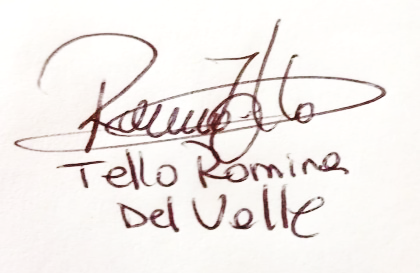 Romina Tello
Tello Romina
Del Valle